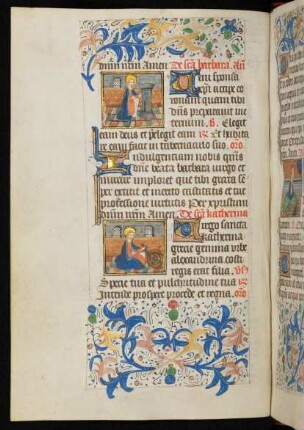 dnm nrm Amen De sca barbara. An
Veni sponsa
xpi accipe co
ronam quam tibi
dns preparavit in e
ternum. v. Elegit
eam deus et pelegit eam R Et habita
re eam facit in tabernaculo suo. oro
Indulgentiam nobis qms
dne beata barbara virgo et
martir imploret que tibi grata sem
per extitit et merito castitatis et tue
professione virtutis Per xpristum
dnm nrm Amen. De sca katherina
Virgo sancta
katherina
grecie gemma urbe
alexandrina costi
regis erat filia. vs
Specie tua et pulchritudine tua R
Intende prospere procede et regna. oro